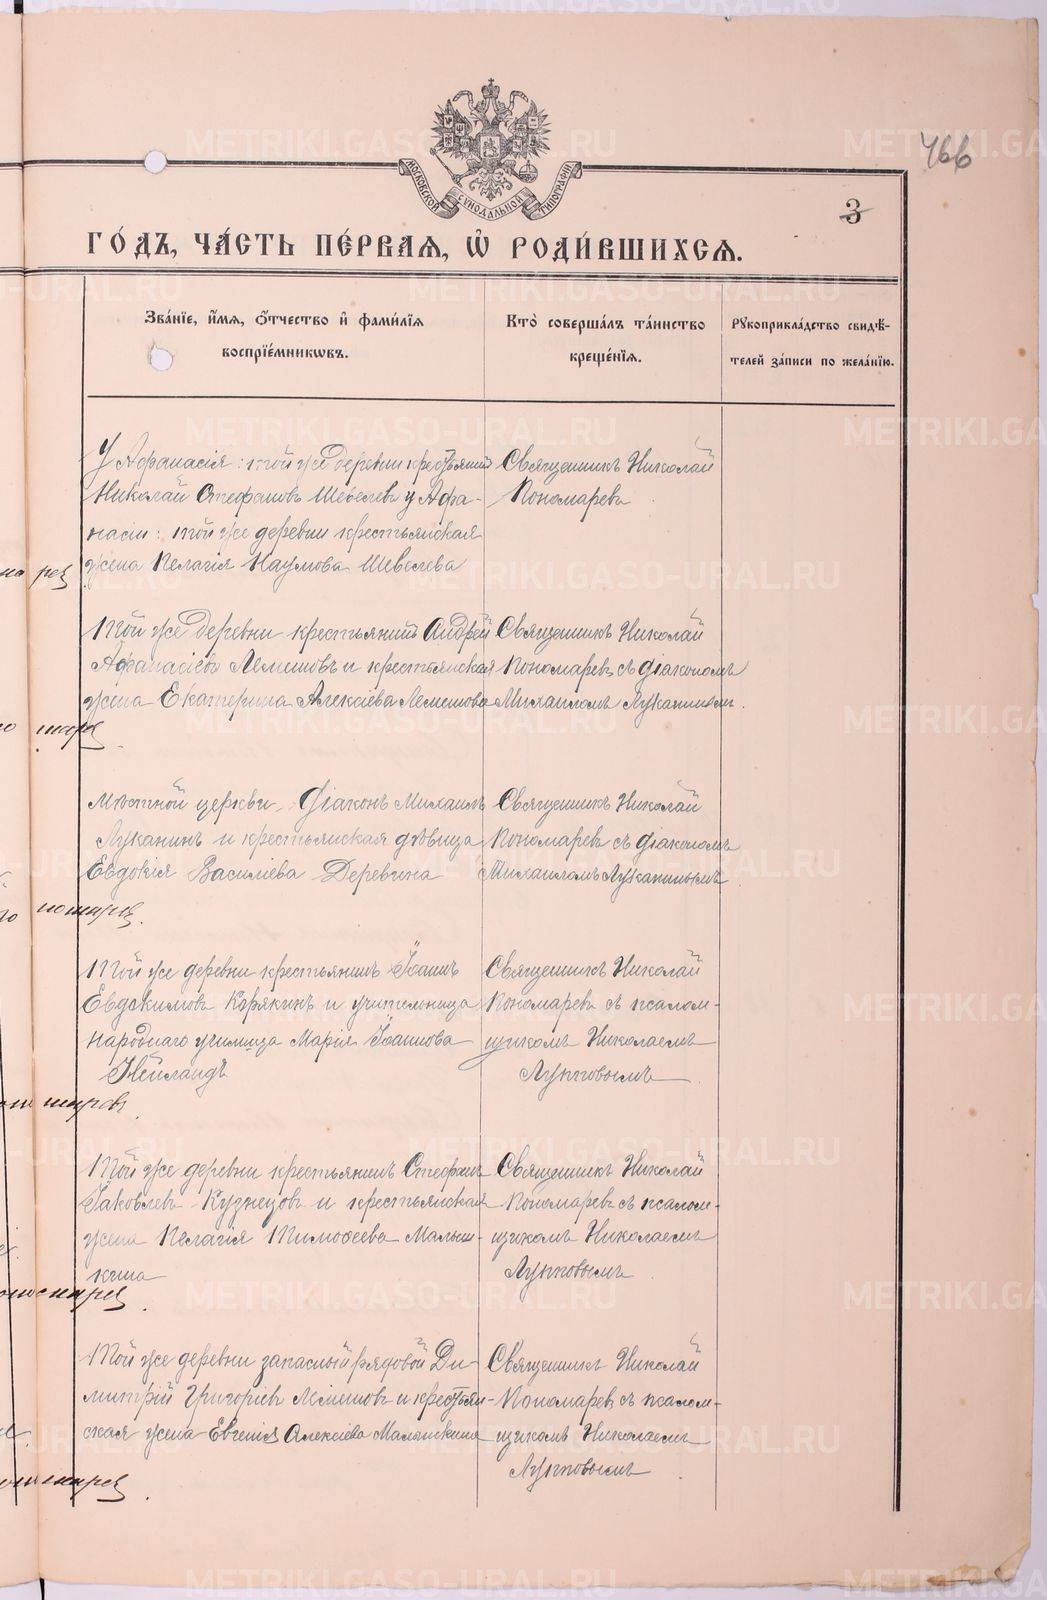 466
МОСКОВСКОЙ СѴНОДАЛЬНОЙ ТИПОГРАФІИ
3
ГО́ДЪ, ЧА́СТЬ ПЕ́РВАЯ, Ѽ РОДИ́ВШИХСЯ.
Зва́нїе, и҆́мѧ, ѻ҆́тчество и҆ фами́лїѧ
воспрїе́мникѡвъ.
Кто̀ соверша́лъ та́инство
креще́нїѧ.
Рꙋкоприкла́дство свидѣ́-
телей за́писи по жела́нїю.
У Афанасія: той же деревни крестьянинъ
Николай Стефановъ Шевелевъ у Афа-
насіи: той же деревни крестьянская
жена Пелагія Наумова Шевелева
Священникъ Николай
Пономаревъ
Той же деревни крестьянинъ Андрей
Афанасіевъ Лемешовъ и крестьянская
жена Екатерина Алексіева Лемешова
Священникъ Николай
Пономаревъ съ діакономъ
Михаиломъ Луканинымъ.
Мѣстной церкви Діаконъ Михаилъ
Луканинъ и крестьянская дѣвица
Евдокія Василіева Деревнина
Священникъ Николай
Пономаревъ съ діакономъ
Михаиломъ Луканинымъ
Той же деревни крестьянинъ Іоаннъ
Евдокимовъ Корякинъ и учительница
народнаго училища Марія Іоаннова
Нейландъ
Священникъ Николай
Пономаревъ съ псалом-
щикомъ Николаемъ
Луппо­вымъ
Той же деревни крестьянинъ Стефанъ
Іаковлевъ Кузнецовъ и крестьянская
жена Пелагія Тимофеева Малыш-
кина
Священникъ Николай
Пономаревъ съ псалом-
щикомъ Николаемъ
Лупповымъ
Той же деревни запасный рядовой Ди-
митрій Григоріевъ Лемешовъ и крестьян-
ская жена Евгенія Алексіева Малышкина
Священникъ Николай
Пономаревъ съ псалом-
щикомъ Николаемъ
Лупповымъ
METRIKI.GASO-URAL.RU